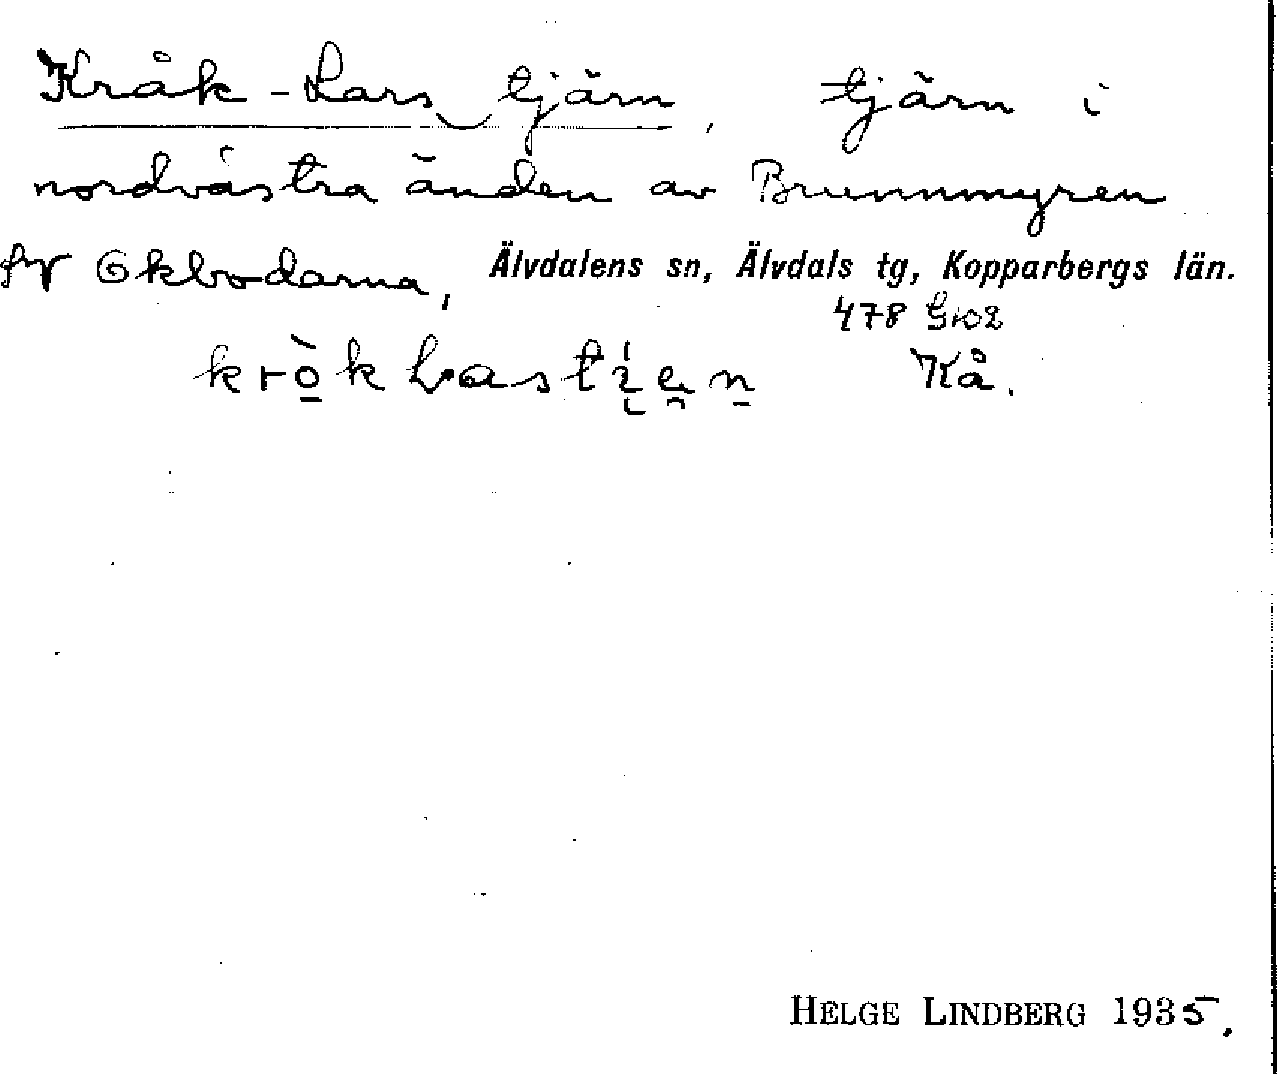 Kråk-Lars‿tjärn, tjärn i
nordvästra änden av Brunnmyren
fv Okbodarna, Älvdalens sn, Älvdals tg, Kopparbergs län.
478
Kå.
HELGE LINDBERG 1935.